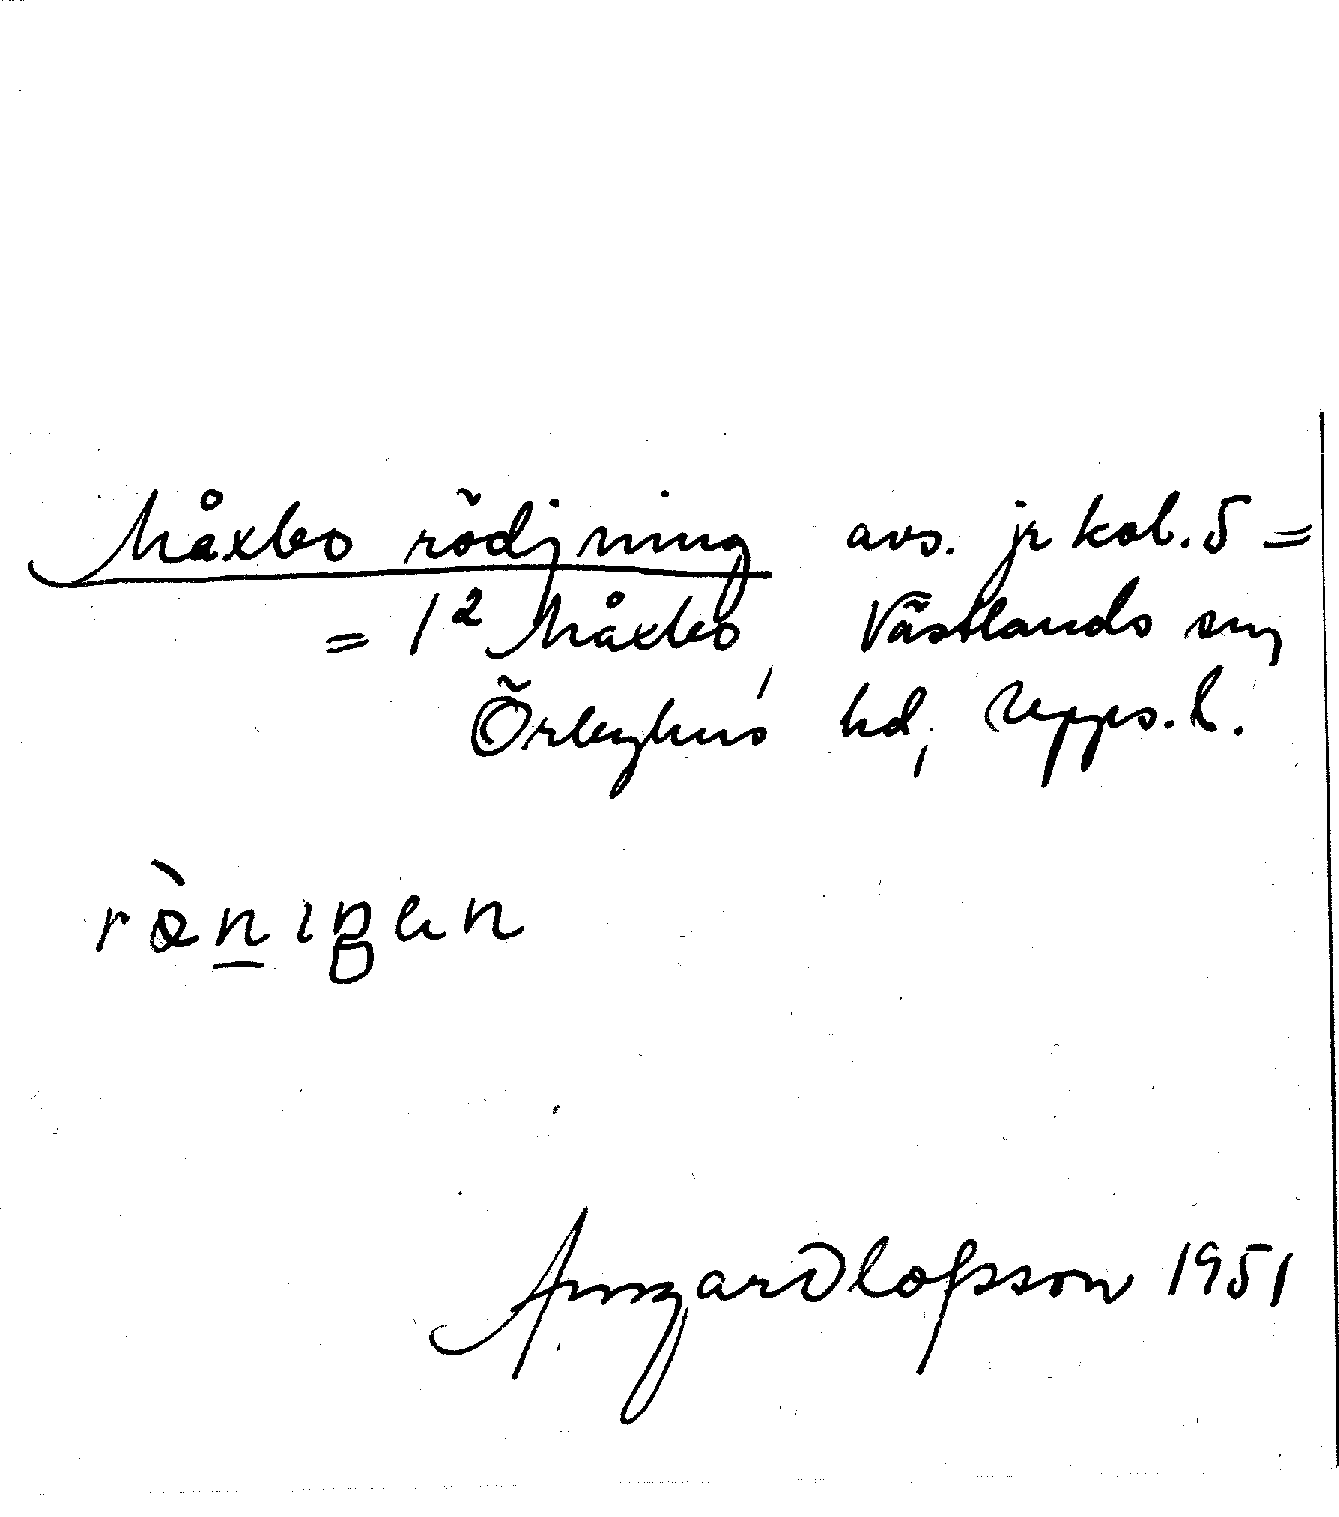 Måxbo rödjning avs. jr kab. 5 =
= 1² Måxbo, Västlands sn,
Örbyhus hd, Upps. l.
Olofsson 1951